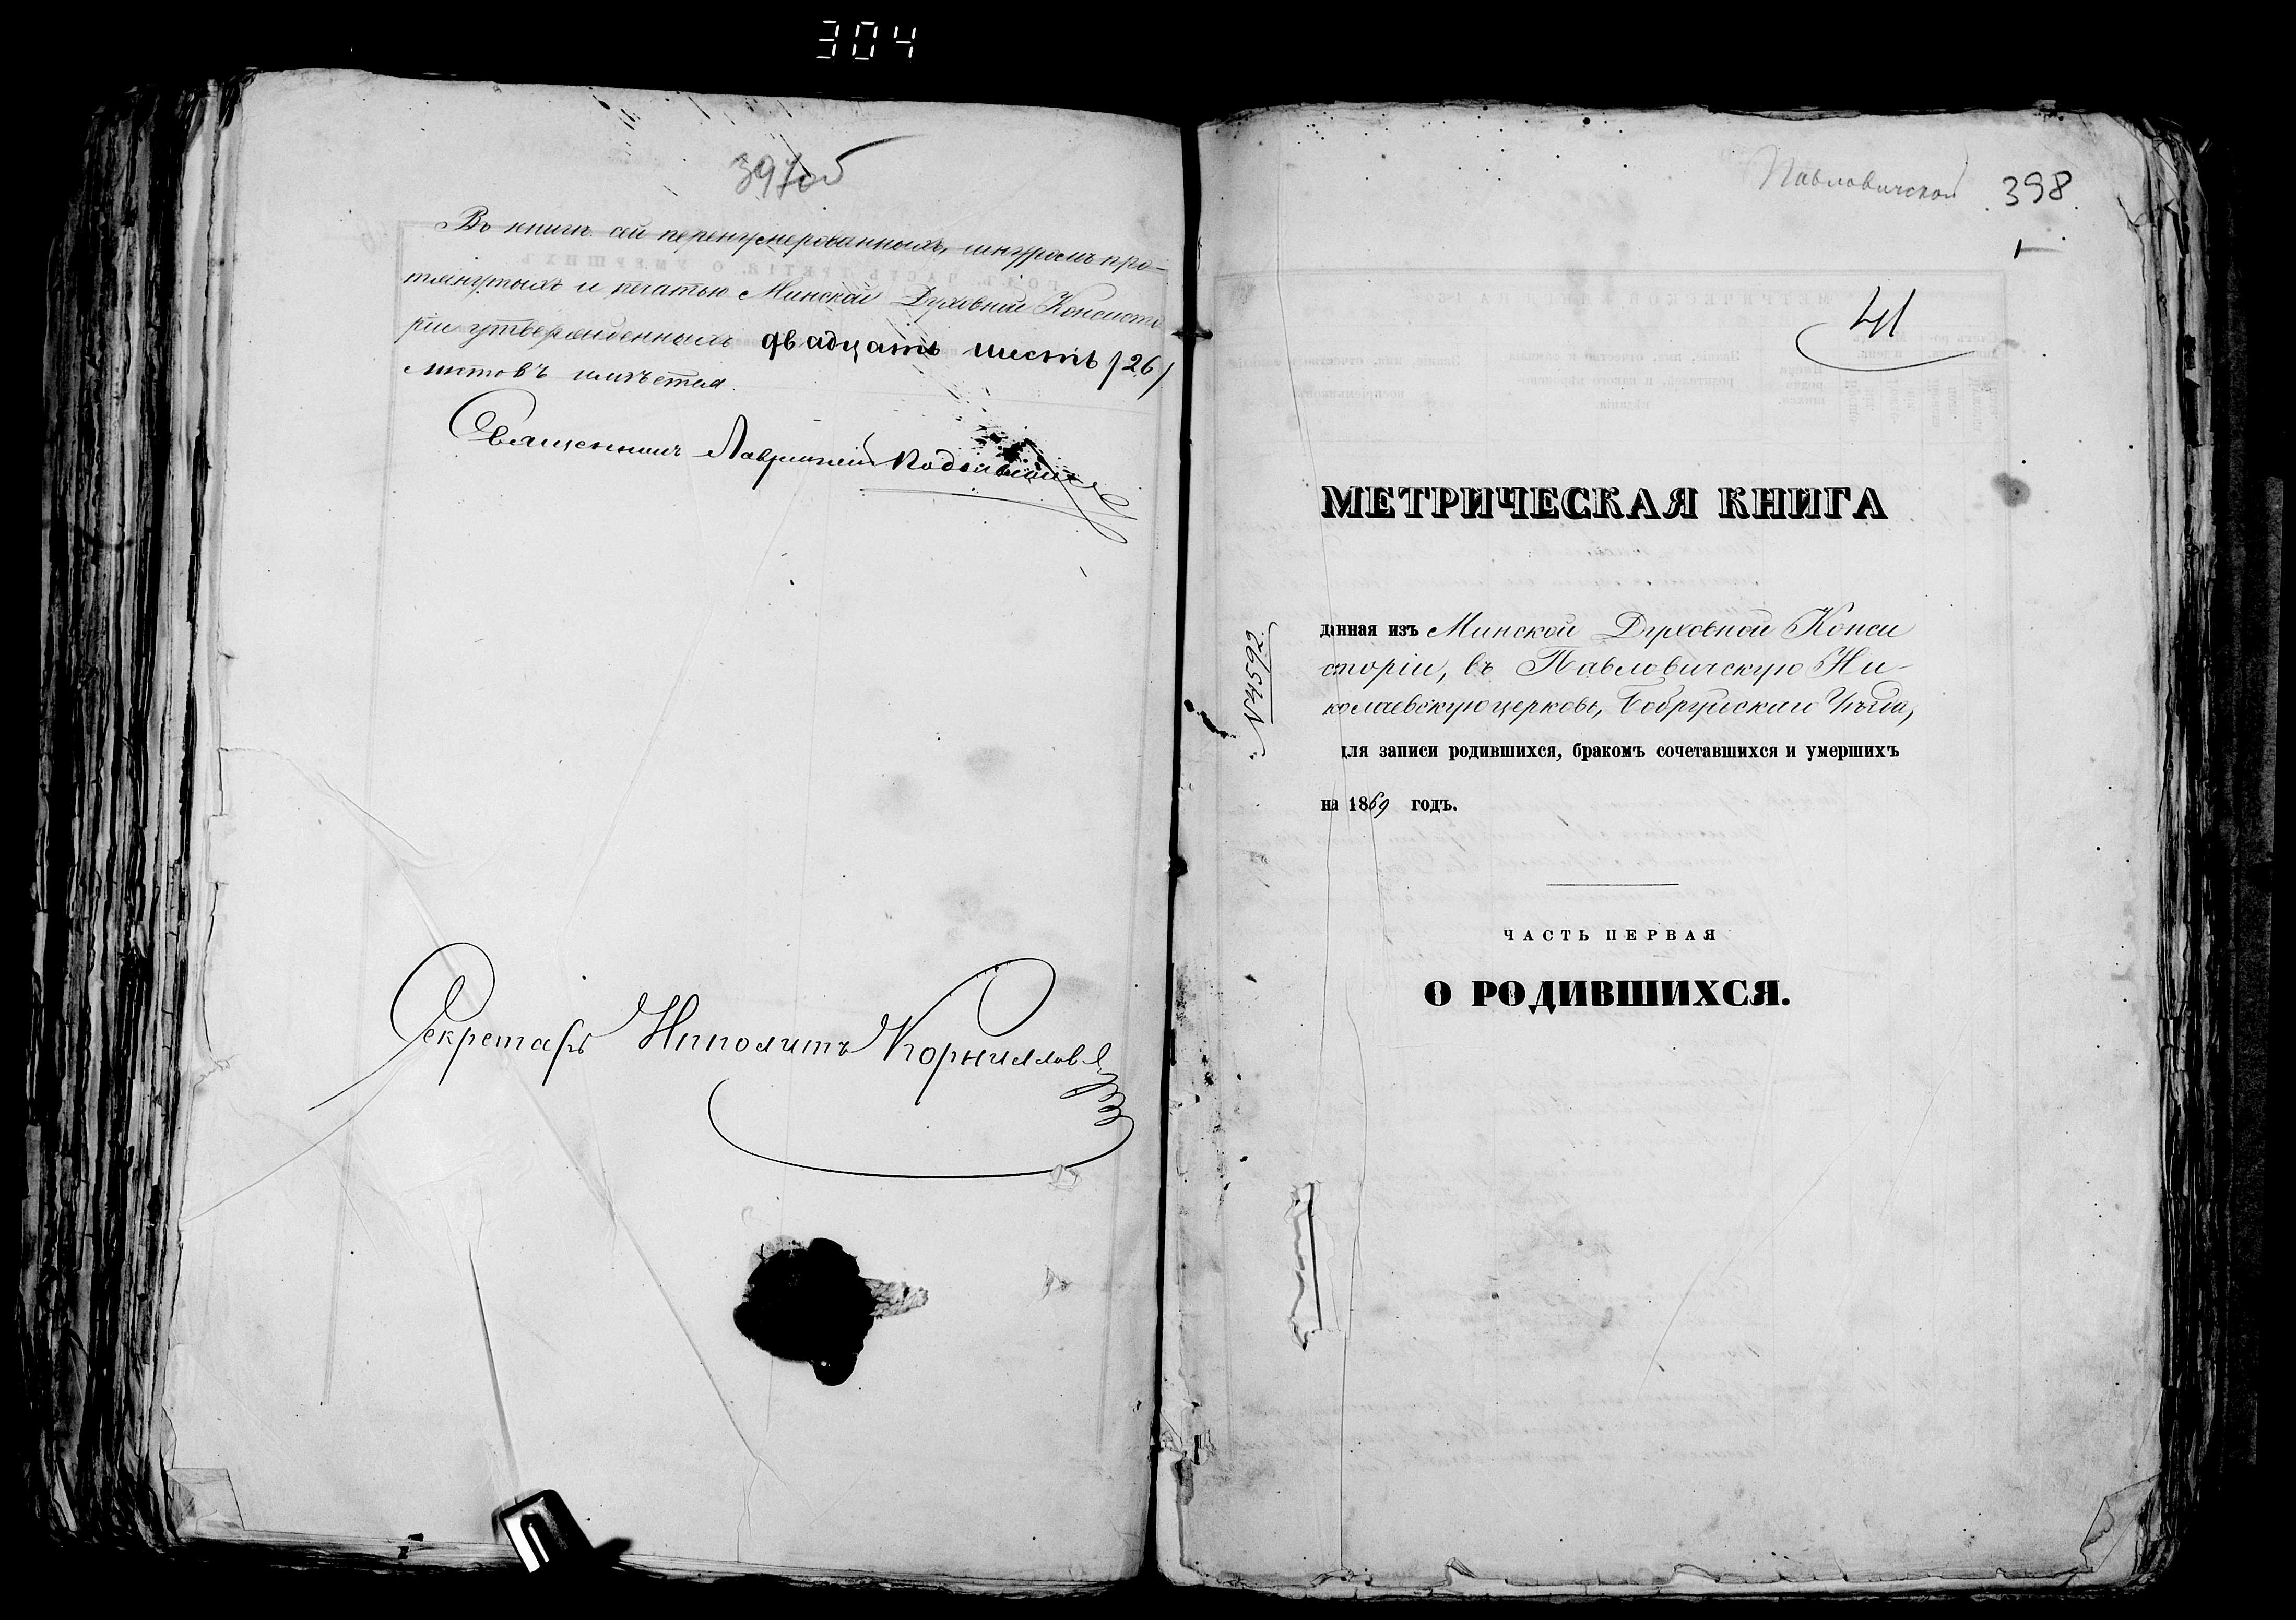 304
397об
Въ книгѣ сей перенумерованныхъ, шнуромъ про-
тянутыхъ и печатью Минской Духовной Консисто
ріи утвержденныхъ двадцать шесть /26/
листовъ имѣется.
Священникъ Лаврентій
Секретарь Ипполитъ Корниллов
Павловичской 398
1
41
МЕТРИЧЕСКАЯ КНИГА
данная изъ Минской Духовной Конси
сторіи, въ Павловичскую Ни-
колаевскую церковь, Бобруйскаго Уѣзда,
для записи родившихся, бракомъ сочетавшихся и умершихъ
на 1869 годъ.
№4592
ЧАСТЬ ПЕРВАЯ
О РОДИВШИХСЯ.